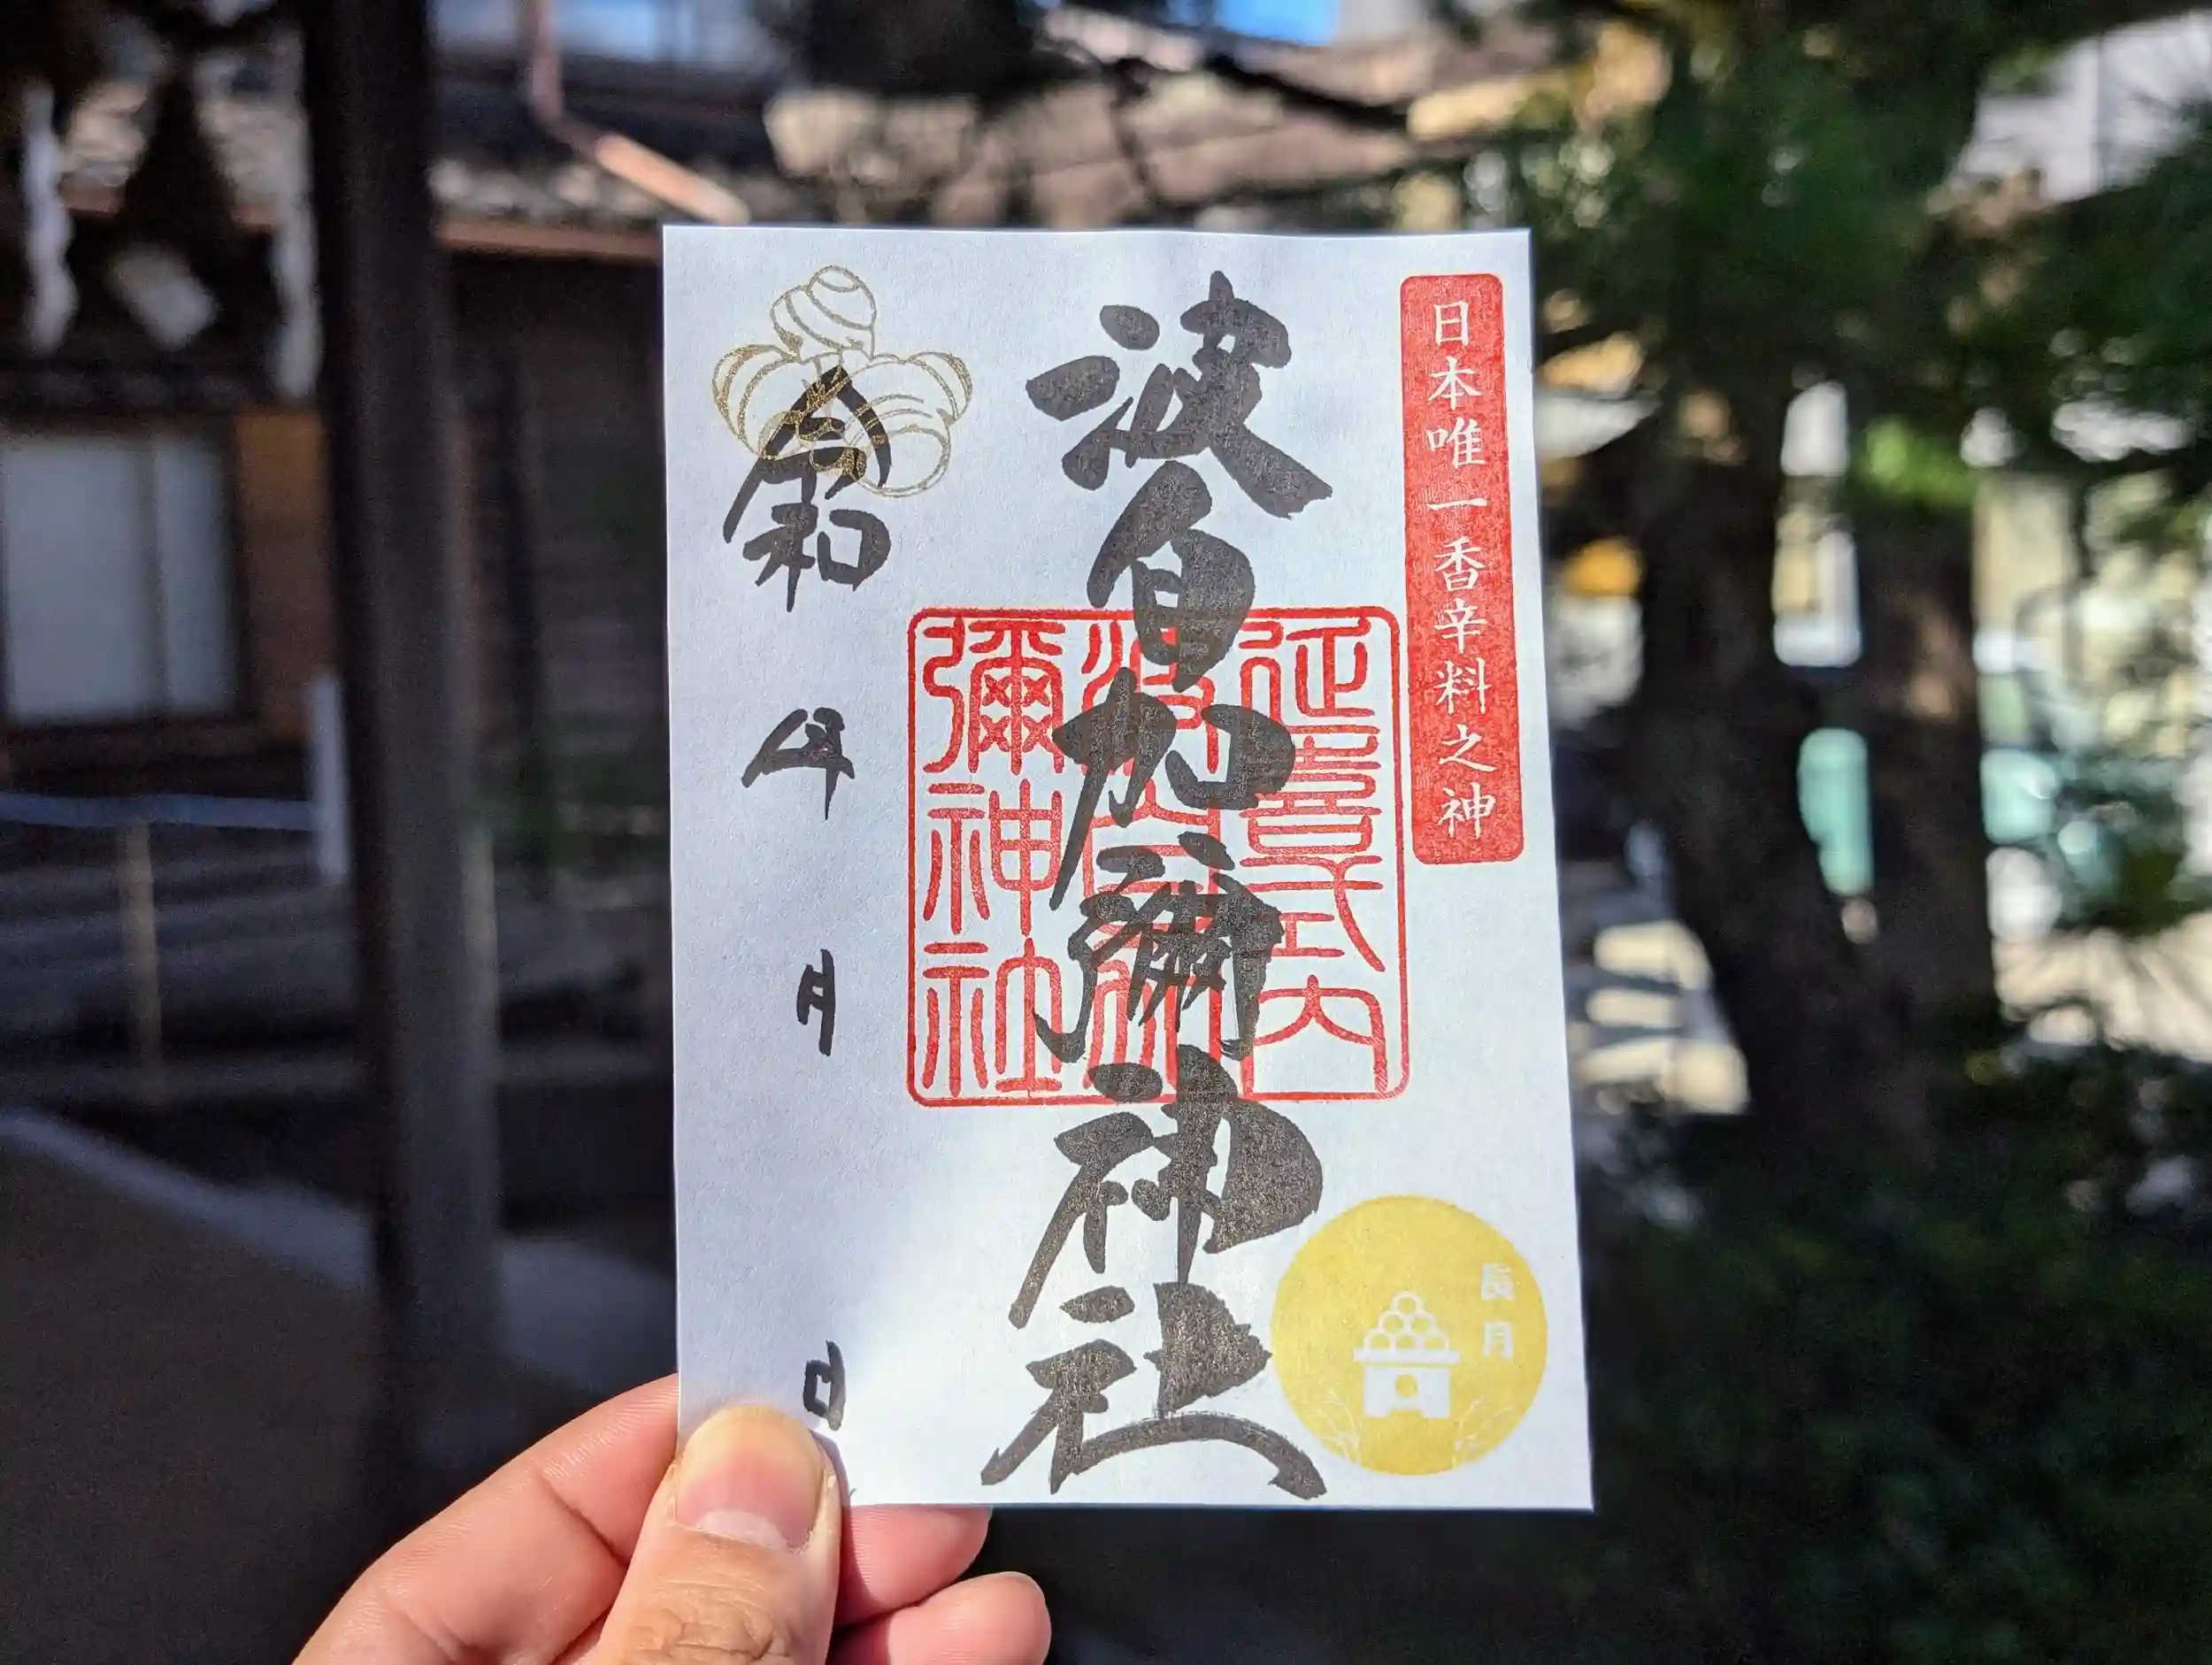 日本唯一香辛料之神
波自加彌神社
延喜式内
波自加
彌神社
長月
令和 年 月 日